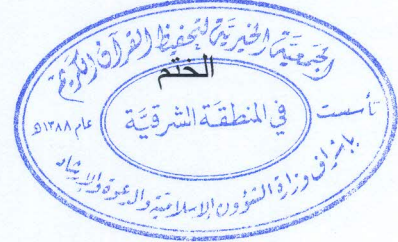 الجمعية الخيرية لتحفيظ القرآن الكريم
الختم
تأسست
في المنطقة الشرقية
عام ١٣٨٨هـ
بإشراف وزارة الشؤون الإسلامية والدعوة والإرشاد